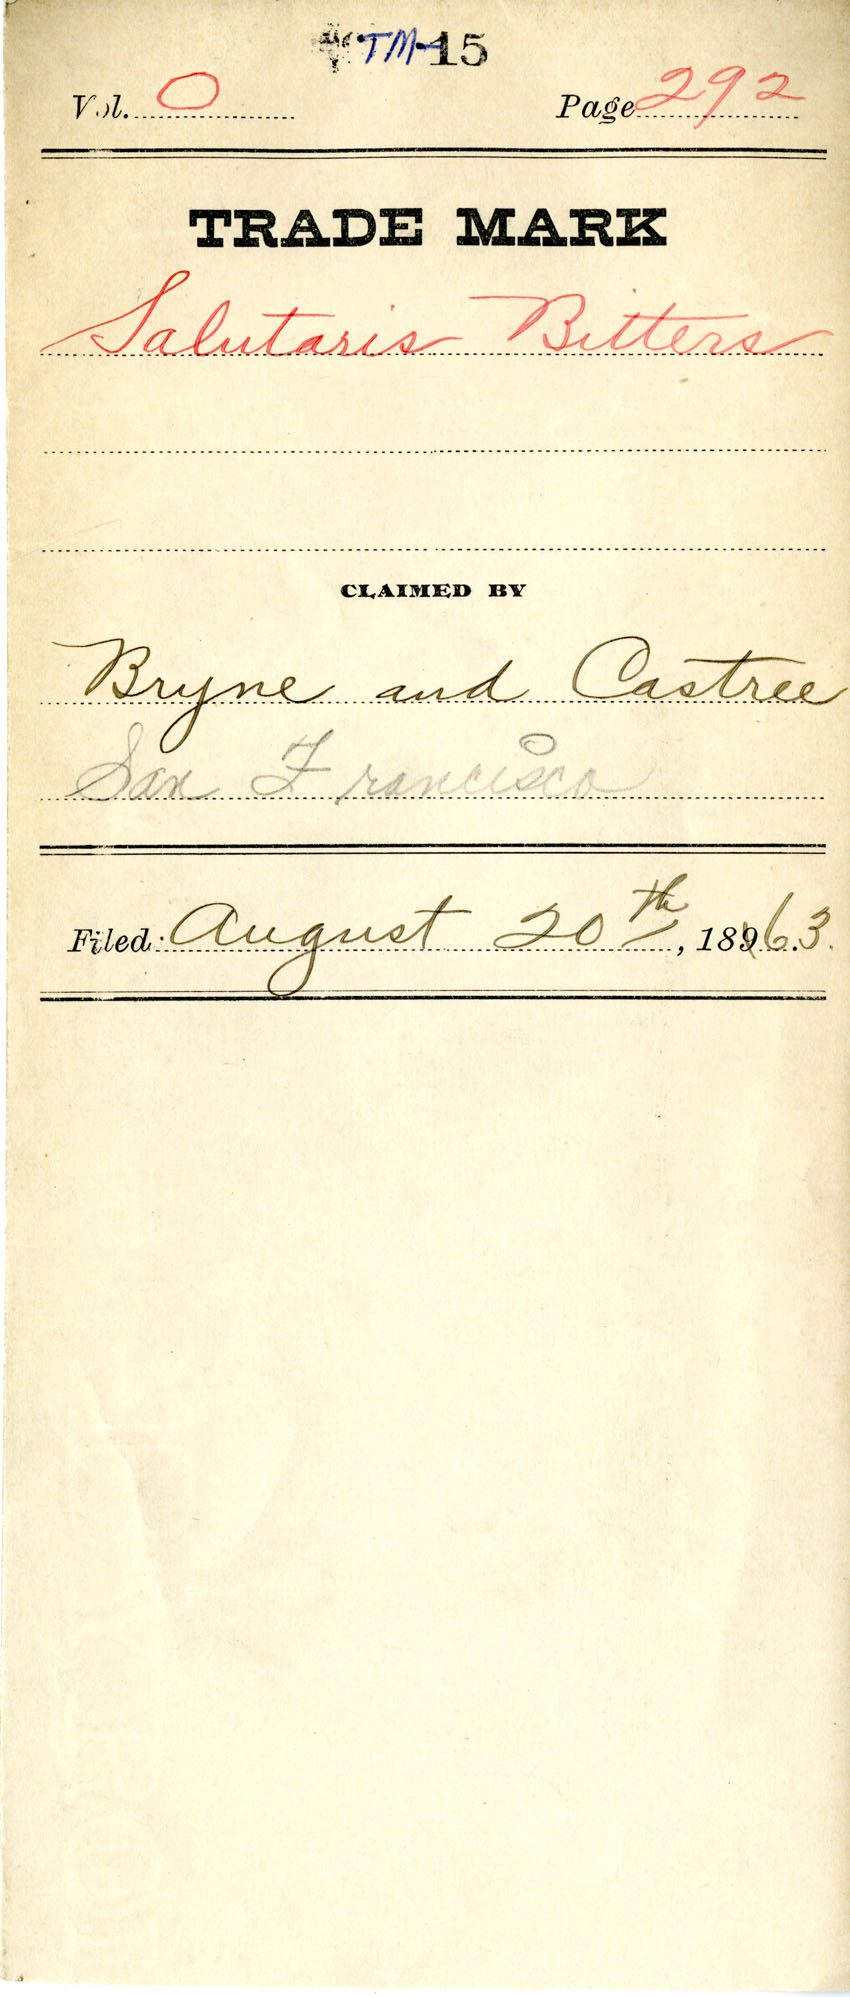 TM-15
Vol. O Page 292
TRADE MARK
Salutaris Bitters
CLAIMED BY
Bryne and Castree
San Francisco
Filed August 20th, 1863.